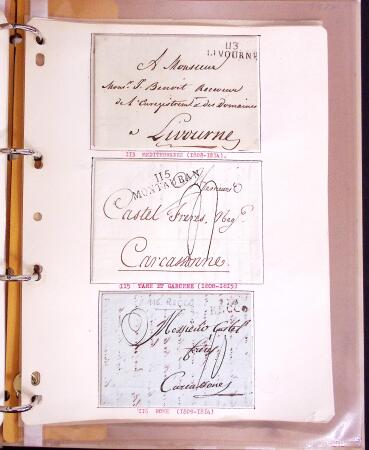 113
LIVOURNE
A Monsieur
Monsr. J. Benoit Receveur
de l'Enregistremt. & des Domaines
a Livourne
113 MEDITERRANEE (1808-1814).
115
MONTAUBAN
Messieurs
Castel Freres, Negts.
Carcassonne
115 TARN ET GARONNE (1808-1815)
116 RECCO
Messieurs Castel
freres
Carcassonne
116 ROME (1809-1814)